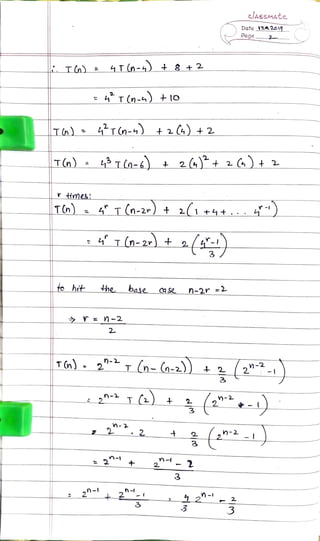 classmate
Date 13.8.2019
Page 2
∴ T(n) = 4T(n-4) + 8 + 2
= 4² T(n-4) + 10
T(n) = 4² T(n-4) + 2(4) + 2
T(n) = 4³ T(n-6) + 2(4)² + 2(4) + 2
r times:
T(n) = 4ʳ T(n-2r) + 2(1 + 4 + ... 4ʳ⁻¹)
= 4ʳ T(n-2r) + 2 ((4ʳ-1)/3)
to hit the base case n-2r = 2
⇒ r = (n-2)/2
T(n) = 2ⁿ⁻² T(n-(n-2)) + 2/3 (2ⁿ⁻² - 1)
= 2ⁿ⁻² T(2) + 2/3 (2ⁿ⁻² - 1)
= 2ⁿ⁻² . 2 + 2/3 (2ⁿ⁻² - 1)
= 2ⁿ⁻¹ + (2ⁿ⁻¹ - 2)/3
= 2ⁿ⁻¹ + (2ⁿ⁻¹ - 1)/3 = 4/3 2ⁿ⁻¹ - 2/3